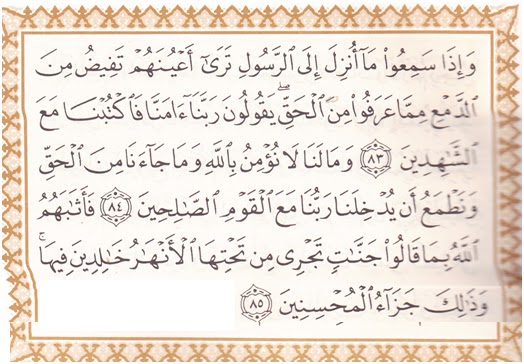 وَإِذَا سَمِعُوا۟ مَآ أُنزِلَ إِلَى ٱلرَّسُولِ تَرَىٰٓ أَعْيُنَهُمْ تَفِيضُ مِنَ
ٱلدَّمْعِ مِمَّا عَرَفُوا۟ مِنَ ٱلْحَقِّ ۖ يَقُولُونَ رَبَّنَآ ءَامَنَّا فَٱكْتُبْنَا مَعَ
ٱلشَّٰهِدِينَ ٨٣ وَمَا لَنَا لَا نُؤْمِنُ بِٱللَّهِ وَمَا جَآءَنَا مِنَ ٱلْحَقِّ
وَنَطْمَعُ أَن يُدْخِلَنَا رَبُّنَا مَعَ ٱلْقَوْمِ ٱلصَّٰلِحِينَ ٨٤ فَأَثَٰبَهُمُ
ٱللَّهُ بِمَا قَالُوا۟ جَنَّٰتٍ تَجْرِى مِن تَحْتِهَا ٱلْأَنْهَٰرُ خَٰلِدِينَ فِيهَا ۚ
وَذَٰلِكَ جَزَآءُ ٱلْمُحْسِنِينَ ٨٥